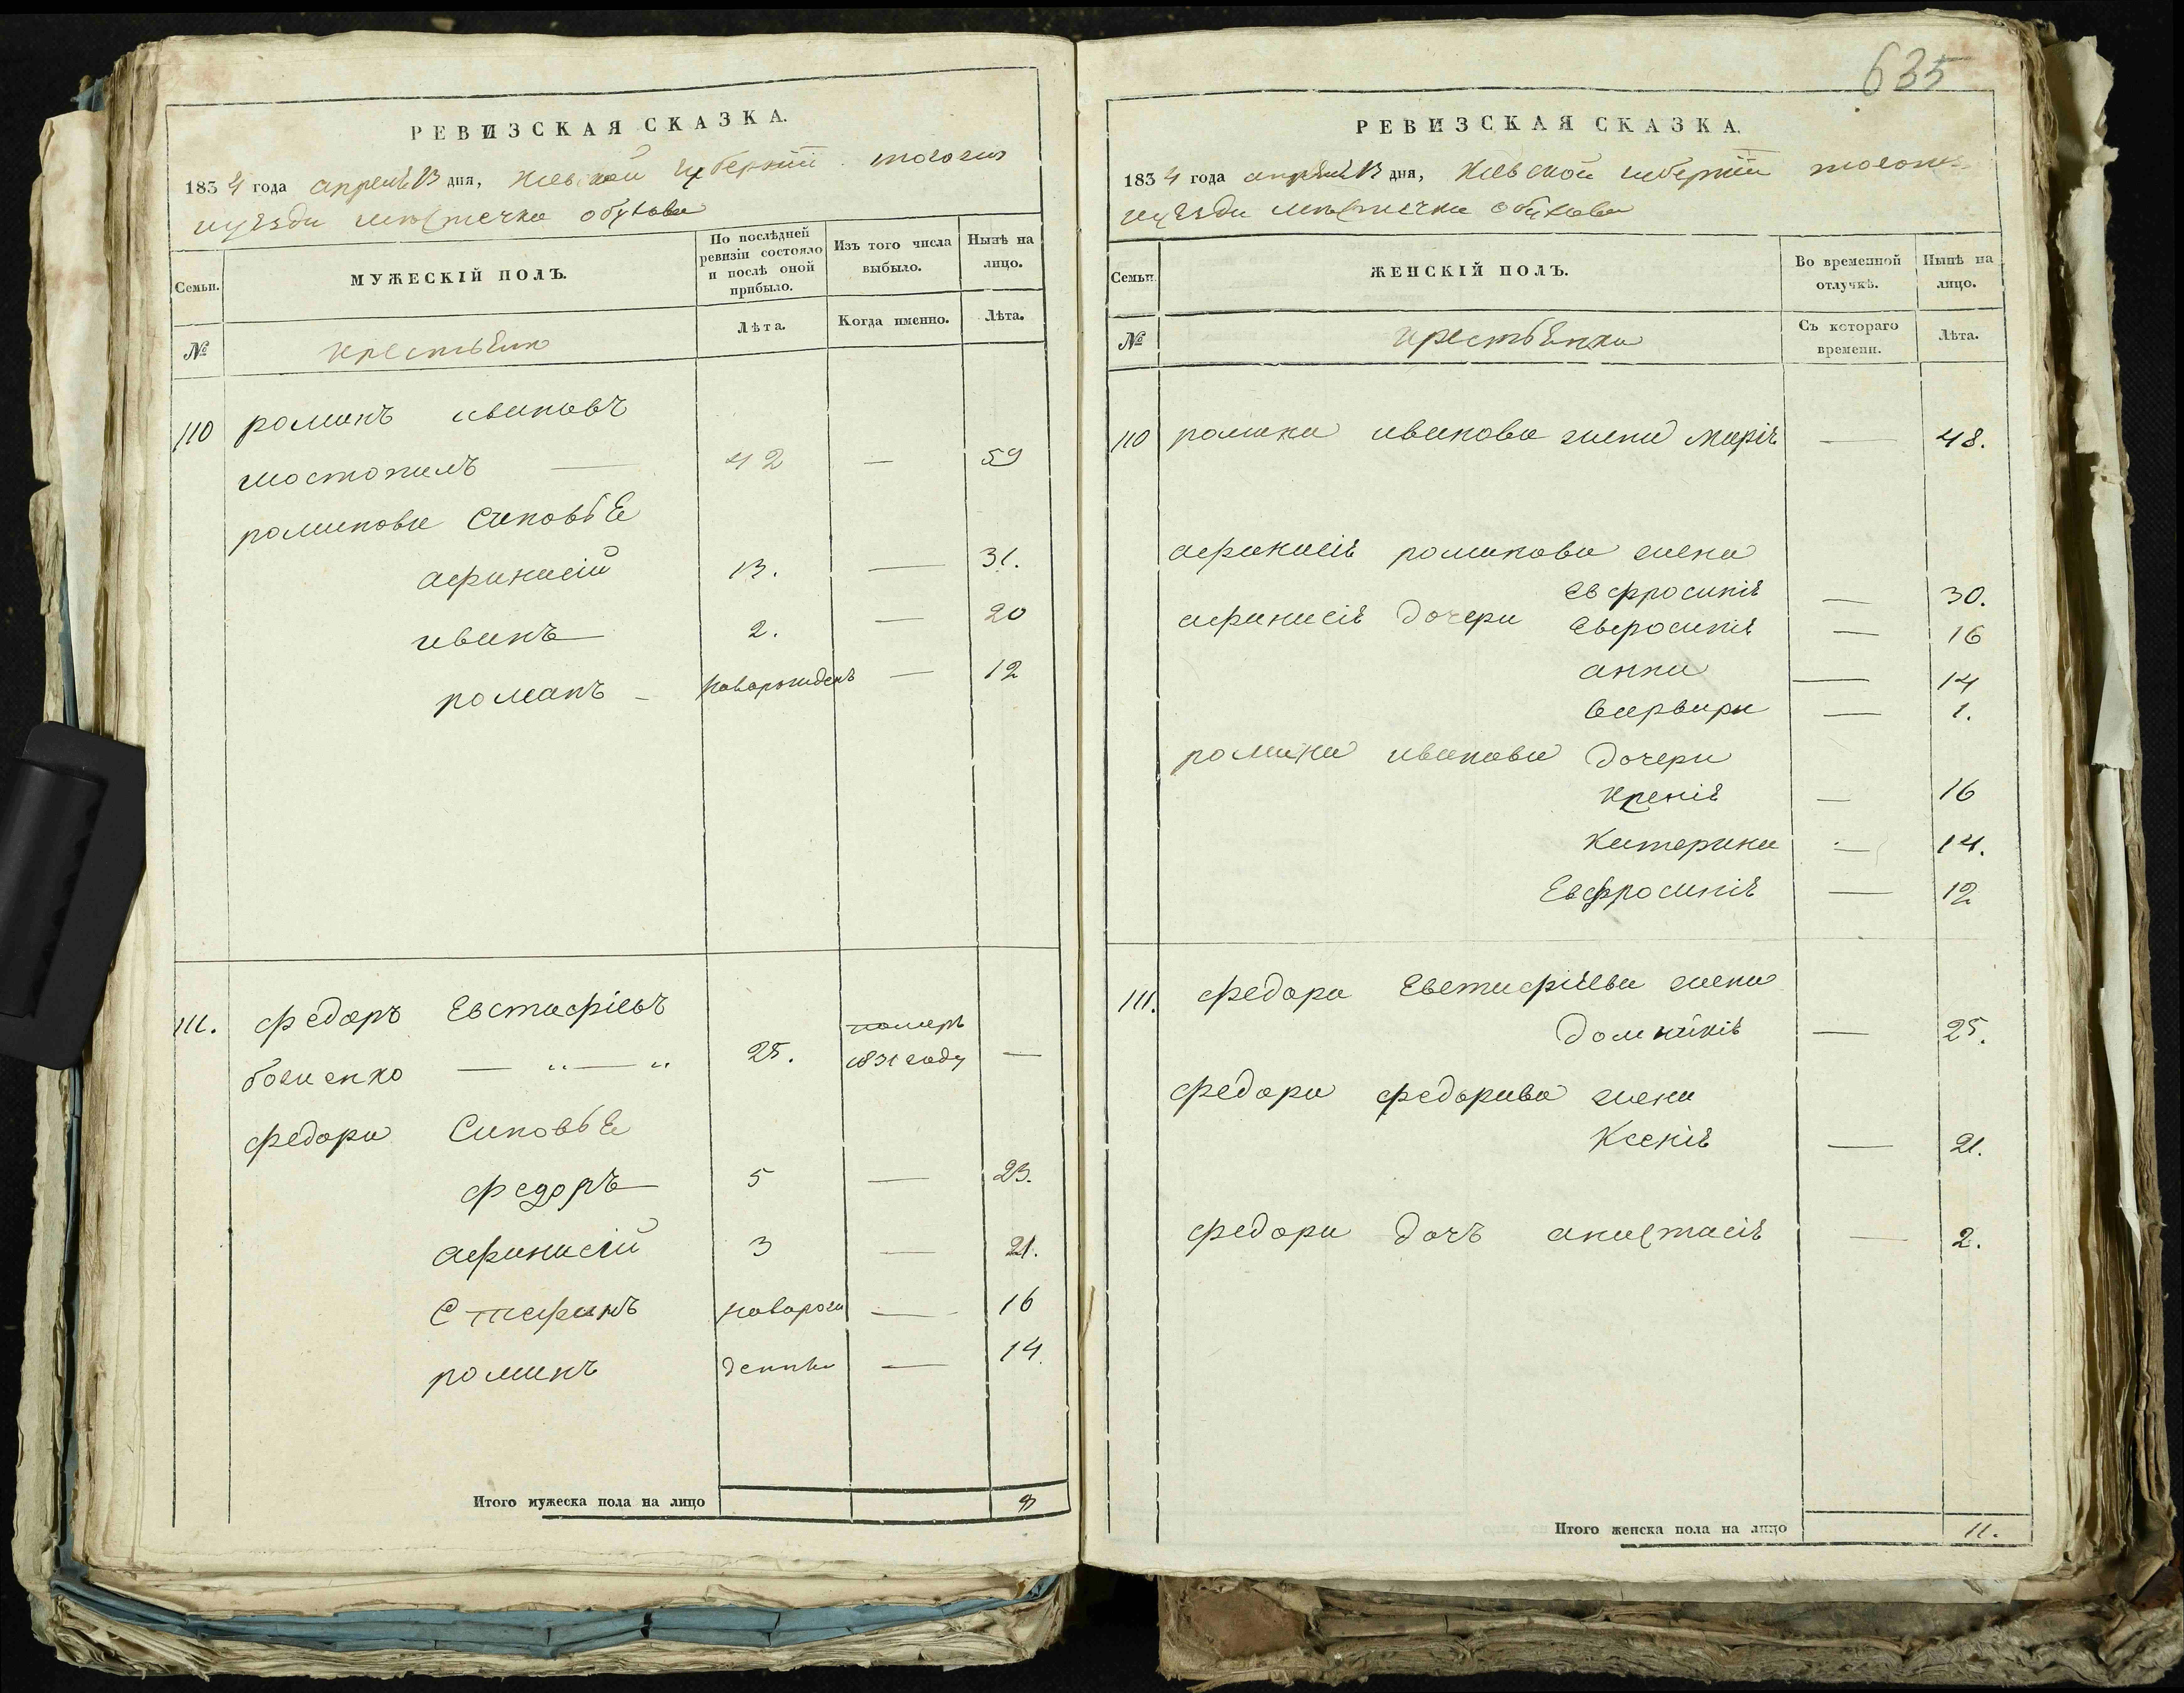 635
РЕВИЗСКАЯ СКАЗКА.
1834 года апреля 13 дня, Киевской губернии тогожъ
уѣзда местечка обухова
Семьи.
МУЖЕСКІЙ ПОЛЪ.
По послѣдней ревизіи состояло и послѣ оной прибыло.
Изъ того числа выбыло.
Нынѣ на лицо.
№
крестьяне
Лѣта.
Когда именно.
Лѣта.
110 романъ ивановъ
42 — 59
романовы сыновья
афанасий 13. — 31.
иванъ 2. — 20
романъ – новорожденъ — 12
111. федоръ Евстафіевъ
25. померъ 1831 году —
федора Сыновья
федоръ 5 — 23.
афанасій 3 — 21.
Стефанъ новорож — 16
романъ денны — 14.
Итого мужеска пола на лицо
РЕВИЗСКАЯ СКАЗКА.
1834 года апреля 13 дня, Киевской губернии тогожъ
уѣзда местечка обухова
Семьи.
ЖЕНСКІЙ ПОЛЪ.
Во временной отлучкѣ.
Нынѣ на лицо.
№
крестьянки
Съ котораго времени.
Лѣта.
110 романа иванова жена марія — 48.
афанасія романова жена
Евфросинія — 30.
афанасія дочери Евфросинія — 16
анна — 14
варвара — 1.
романа иванова дочери
16
Катерина — 14.
Евфросинія — 12
111. федора Евстафіева жена
домникія — 25.
федора федорова жена
Ксенія — 21.
федора дочъ анастасія — 2.
Итого женска пола на лицо 11.